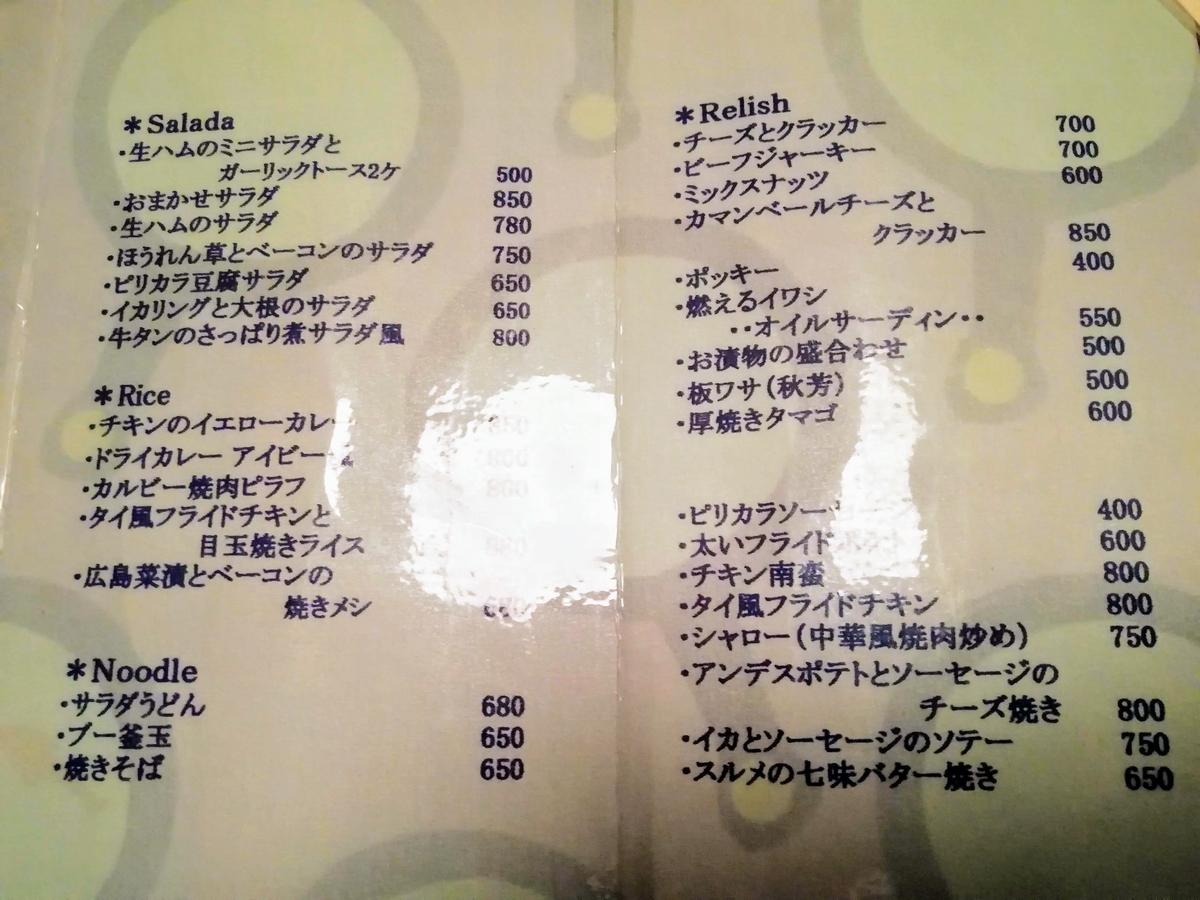 *Salada
・生ハムのミニサラダと
ガーリックトース2ケ 500
・おまかせサラダ 850
・生ハムのサラダ 780
・ほうれん草とベーコンのサラダ 750
・ピリカラ豆腐サラダ 650
・イカリングと大根のサラダ 650
・牛タンのさっぱり煮サラダ風 800
*Rice
・チキンのイエローカレー
・ドライカレー アイビー
・カルビー焼肉ピラフ 800
・タイ風フライドチキンと
目玉焼きライス
・広島菜漬とベーコンの
焼きメシ
*Noodle
・サラダうどん 680
・ブー釜玉 650
・焼きそば 650
*Relish
・チーズとクラッカー 700
・ビーフジャーキー 700
・ミックスナッツ 600
・カマンベールチーズと
クラッカー 850
・ポッキー 400
・燃えるイワシ
・・オイルサーディン・・ 550
・お漬物の盛合わせ 500
・板ワサ(秋芳) 500
・厚焼きタマゴ 600
・ピリカラソー 400
・太いフライドポテト 600
・チキン南蛮 800
・タイ風フライドチキン 800
・シャロー(中華風焼肉炒め) 750
・アンデスポテトとソーセージの
チーズ焼き 800
・イカとソーセージのソテー 750
・スルメの七味バター焼き 650